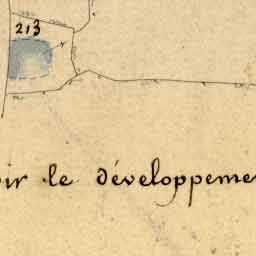 213
oir le développeme